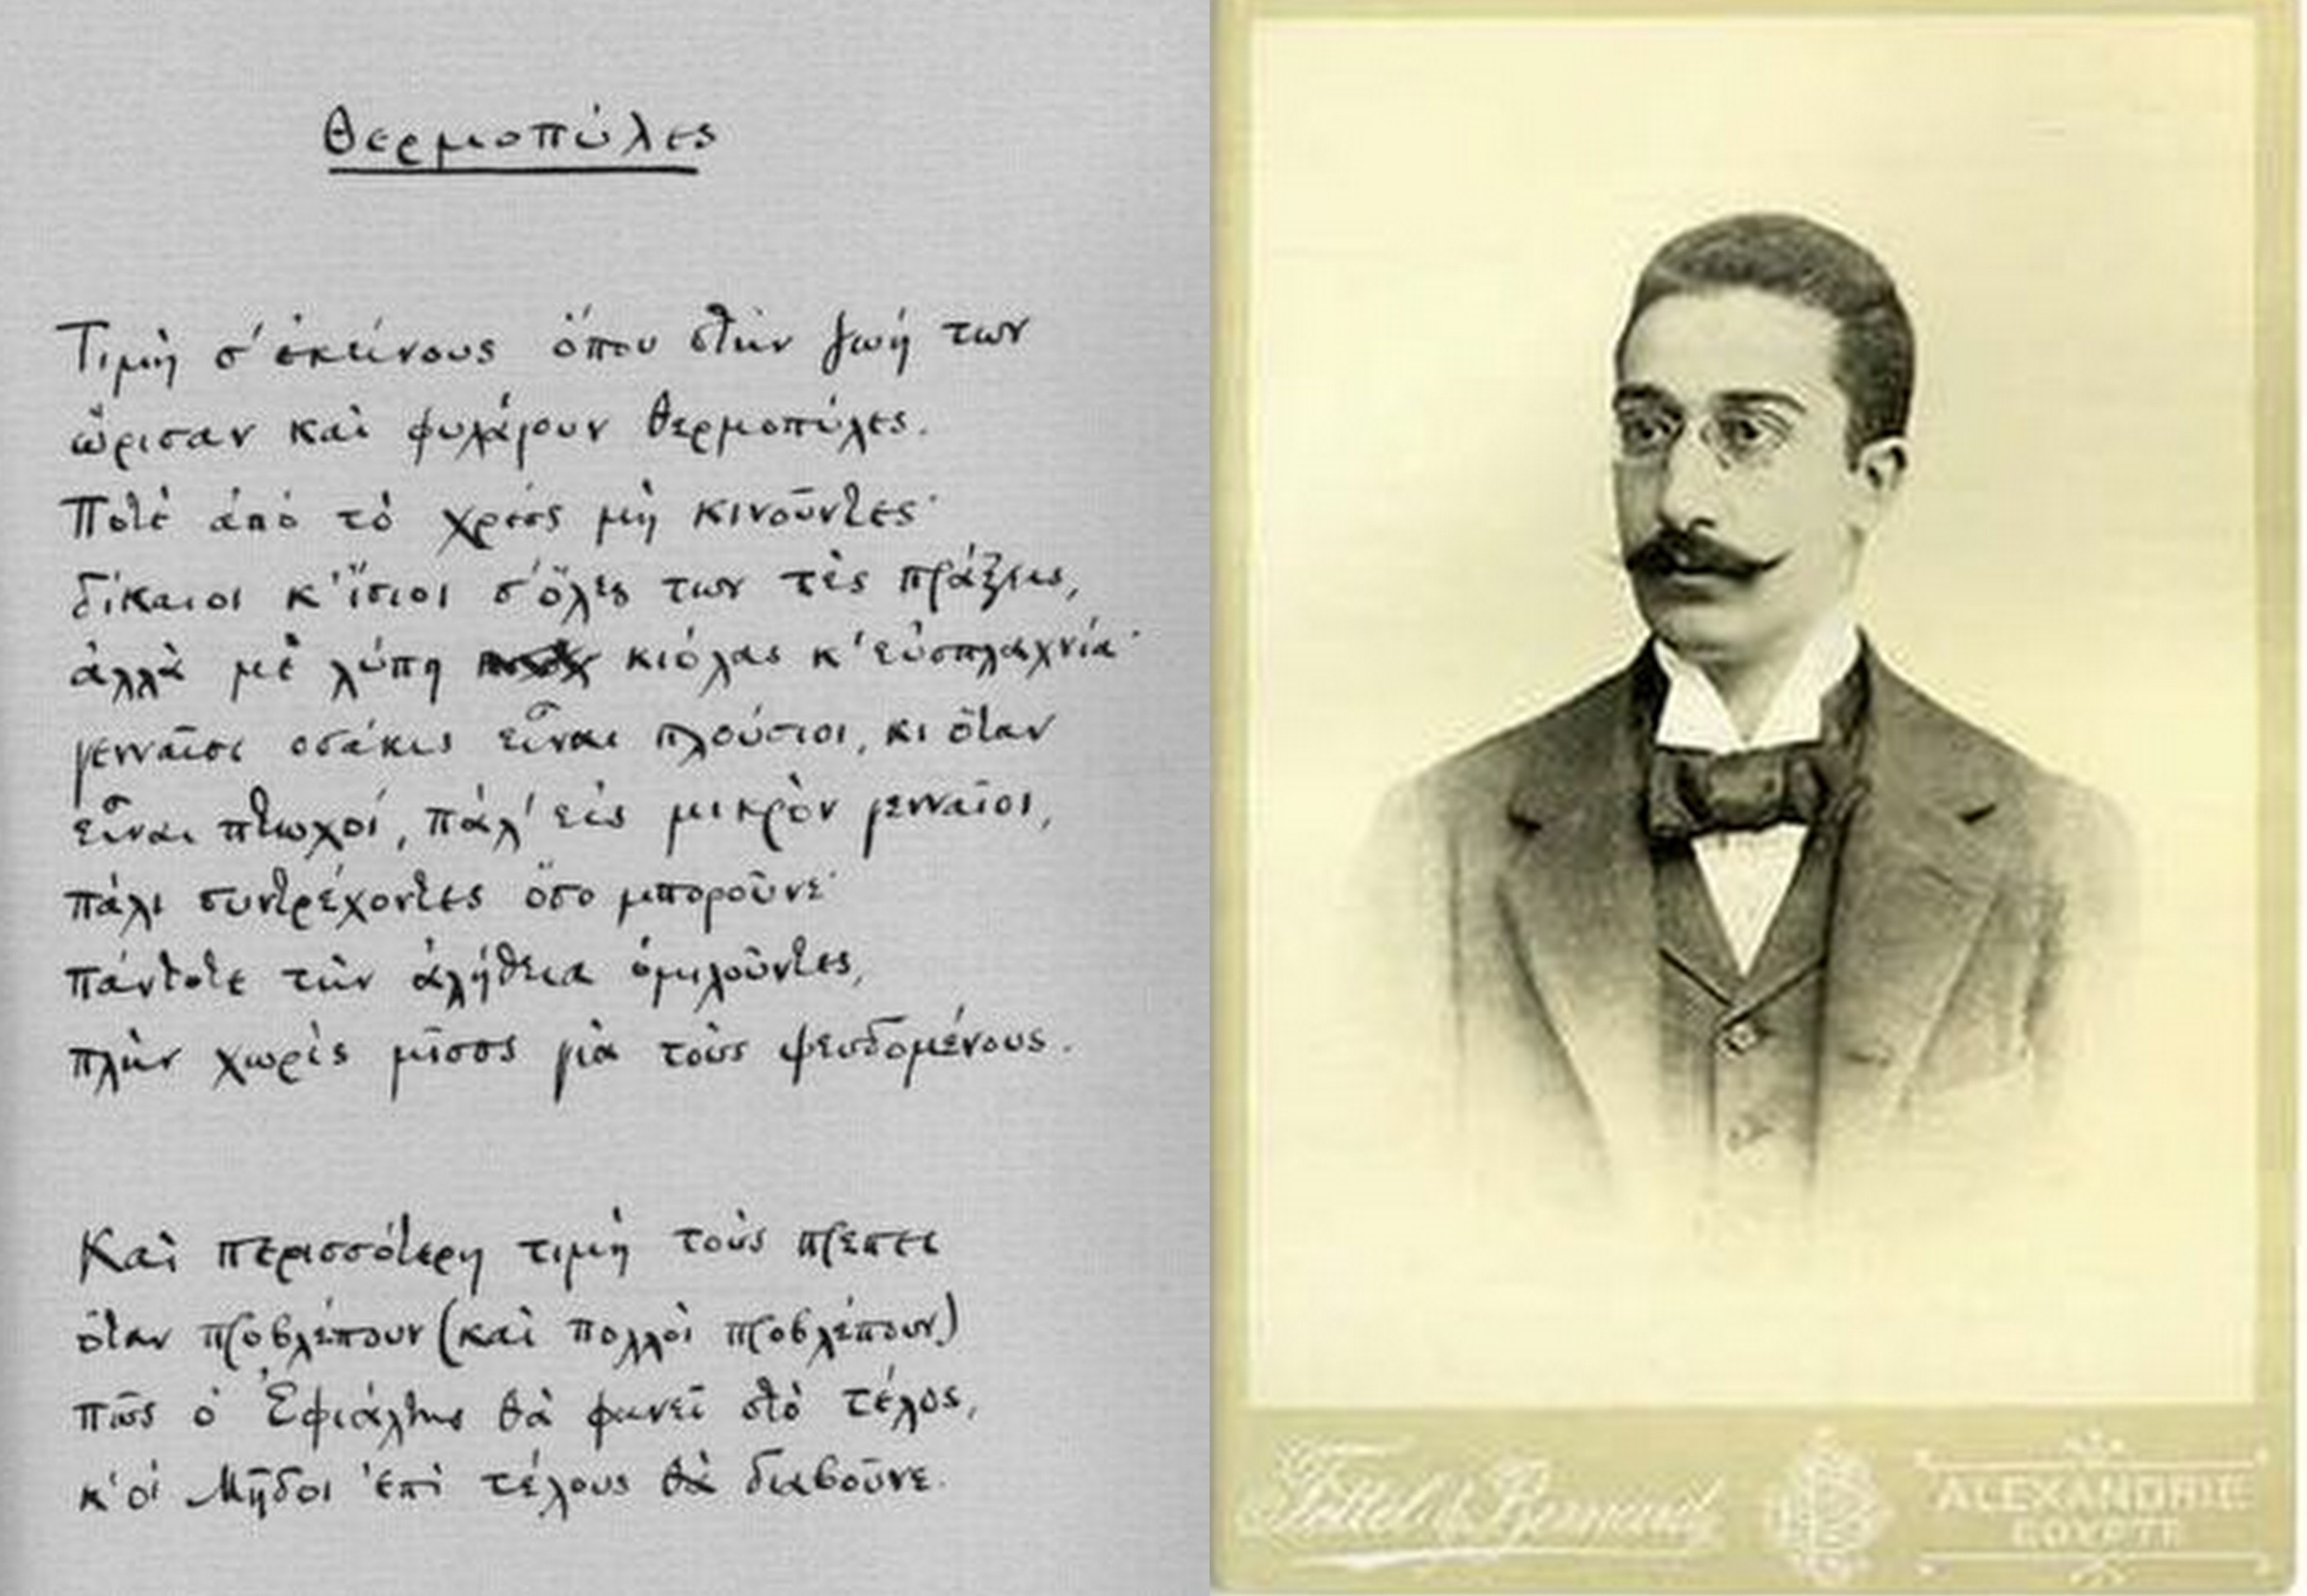 Θερμοπύλες
Τιμὴ σ' ἐκείνους ὅπου στὴν ζωή των
ὥρισαν καὶ φυλάγουν Θερμοπύλες.
Ποτὲ ἀπὸ τὸ χρέος μὴ κινοῦντες·
δίκαιοι κ' ἴσιοι σ' ὅλες των τὲς πράξεις,
ἀλλὰ μὲ λύπη κιόλας κ' εὐσπλαχνία·
γενναῖοι οσάκις εἶναι πλούσιοι, κι ὅταν
εἶναι πτωχοί, πάλ' εἰς μικρὸν γενναῖοι,
πάλι συντρέχοντες ὅσο μποροῦνε·
πάντοτε τὴν ἀλήθεια ὁμιλοῦντες,
πλὴν χωρὶς μῖσος γιὰ τοὺς ψευδομένους.
Καὶ περισσότερη τιμὴ τοὺς πρέπει
ὅταν προβλέπουν (καὶ πολλοὶ προβλέπουν)
πῶς ὁ Ἐφιάλτης θὰ φανεῖ στὸ τέλος,
κ' οἱ Μῆδοι ἐπὶ τέλους θὰ διαβοῦνε.
Fettel & Bernard
ALEXANDRIE
EGYPTE